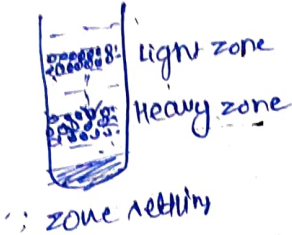 Light zone
Heavy zone
∵ zone settling